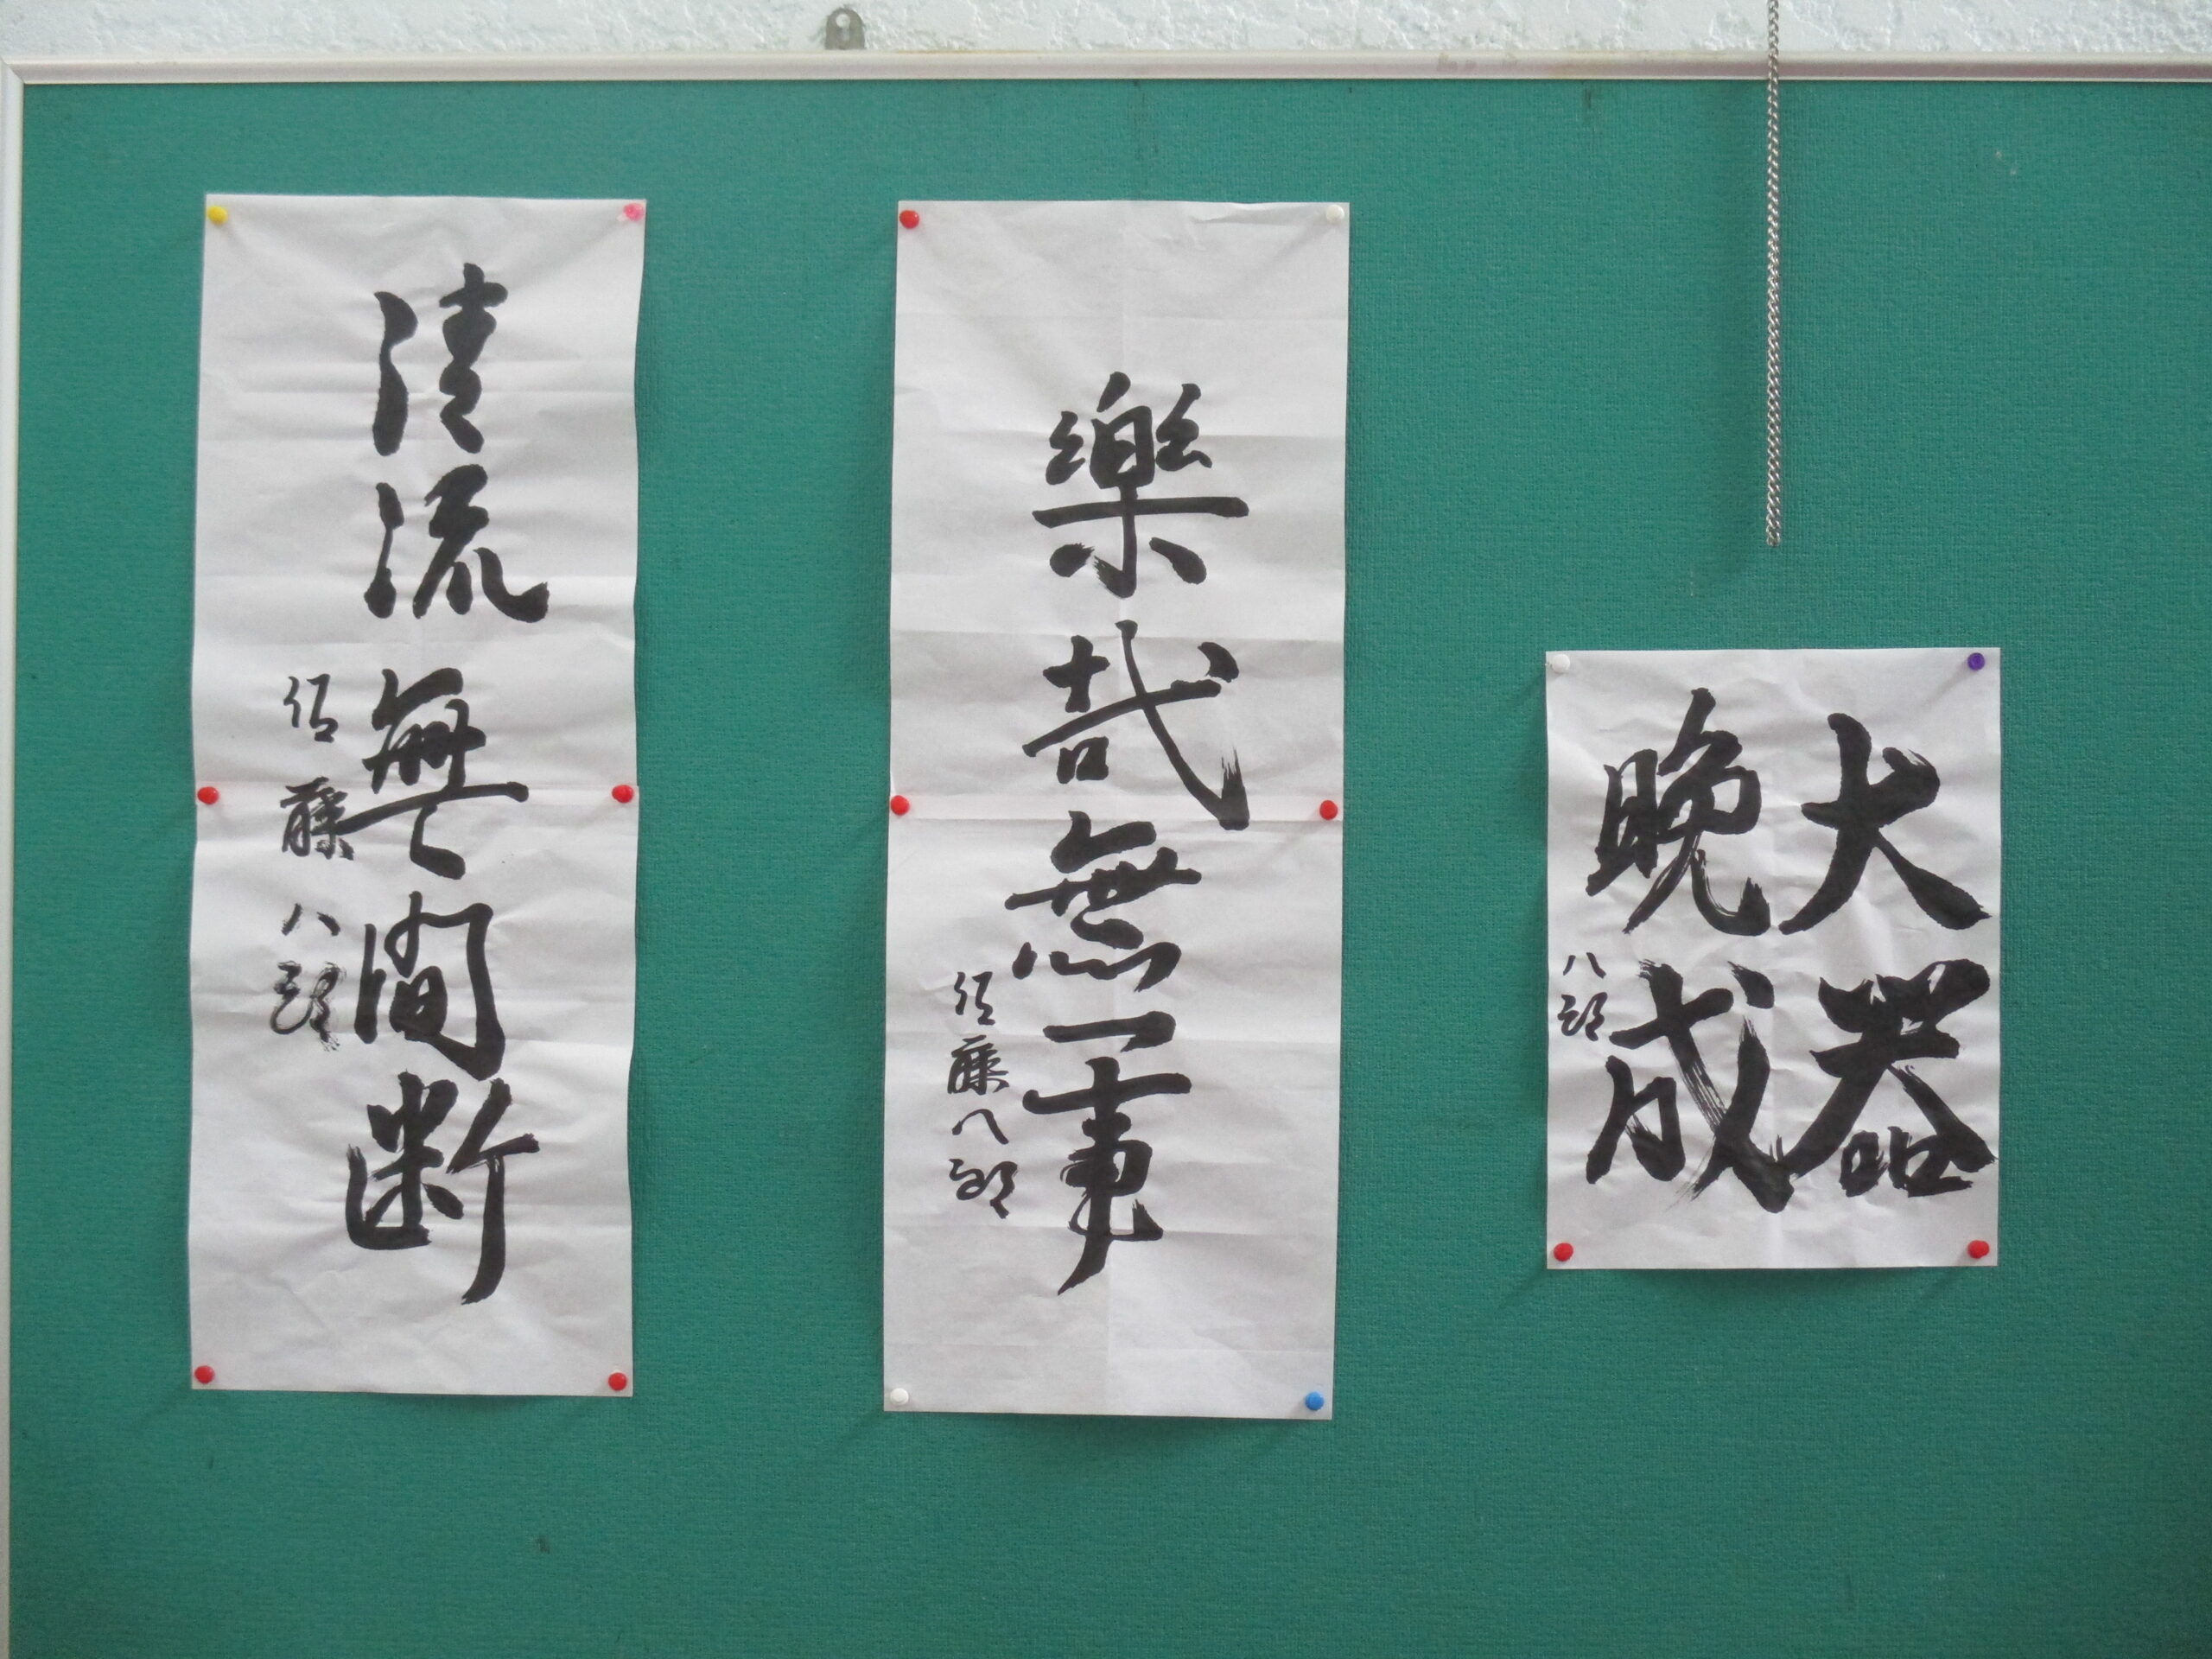 大器
晩成
八郎
樂哉無一事
佐藤八郎
清流無間断
佐藤八郎